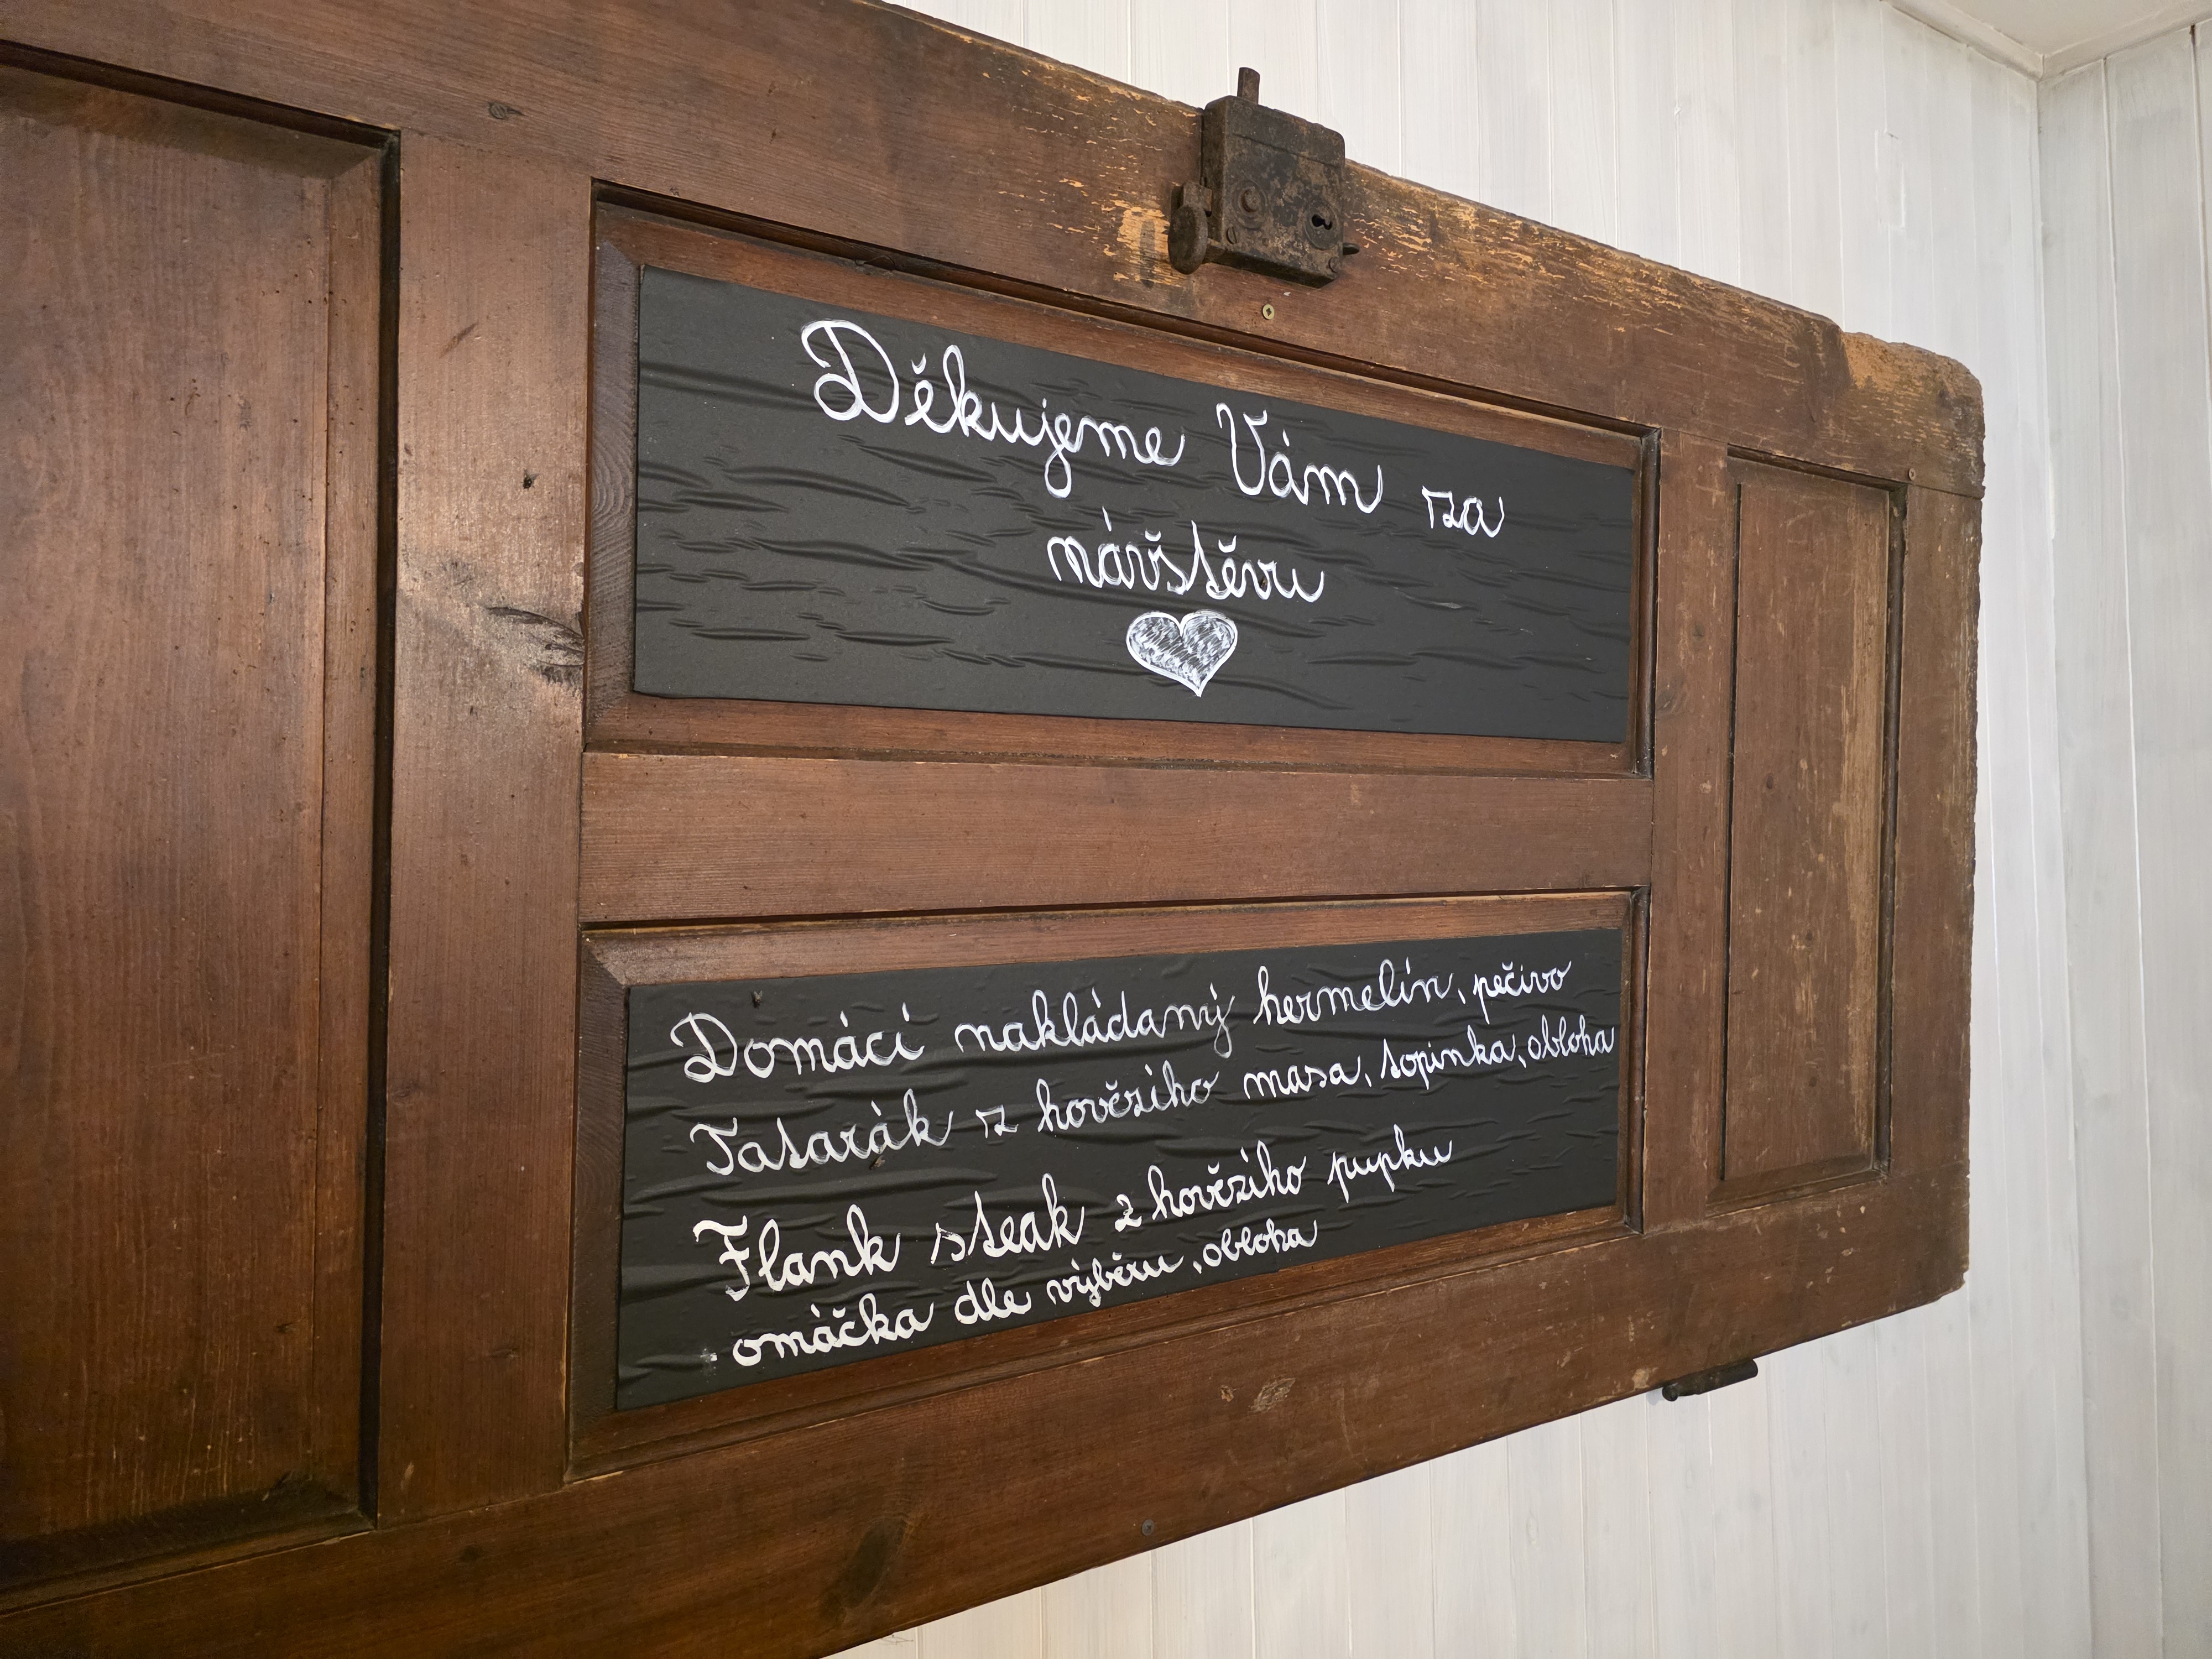 Děkujeme Vám za
návštěvu
Domácí nakládaný hermelín, pečivo
Tatarák z hovězího masa, topinka, obloha
Flank steak z hovězího pupku
omáčka dle výběru, obloha